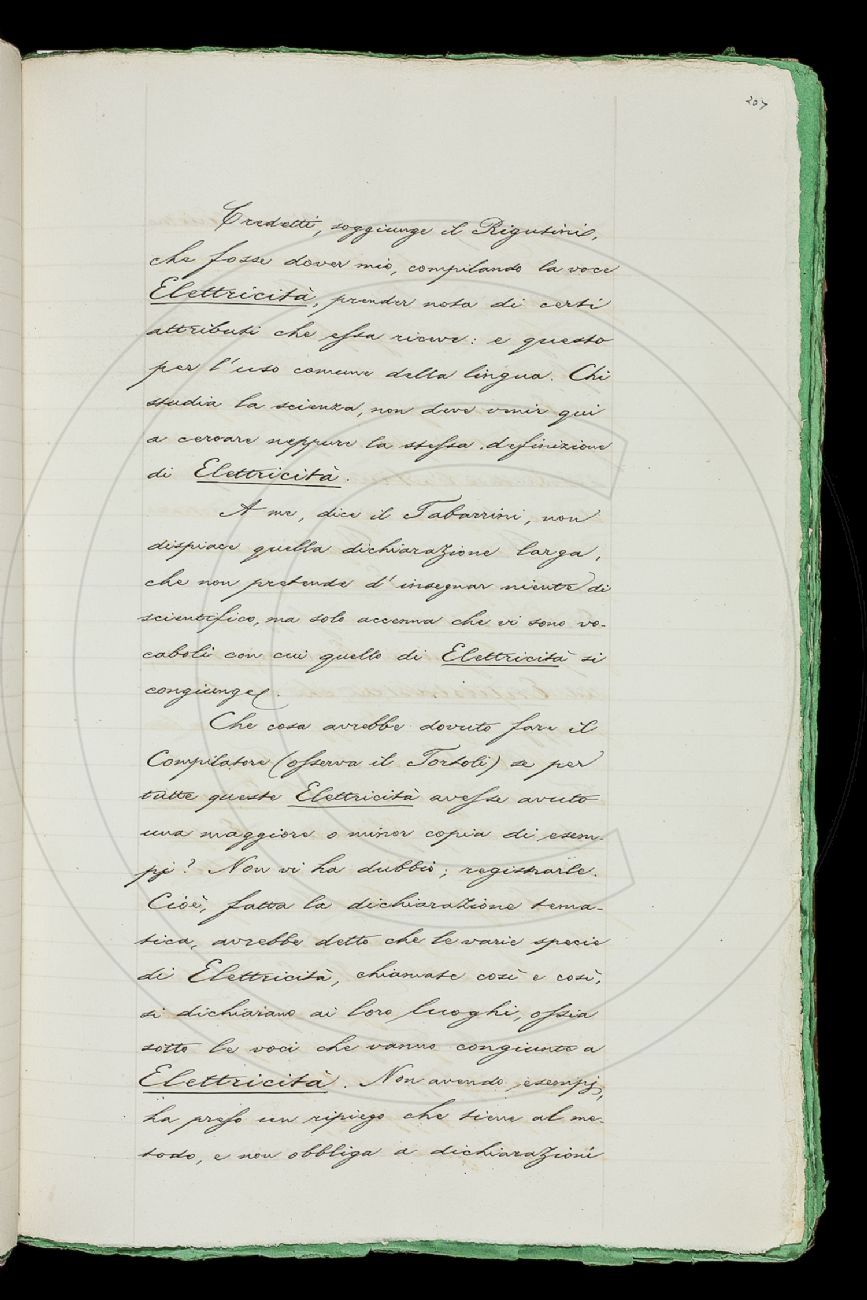 207
Credetti, soggiunge il Rigutini,
che fosse dover mio, compilando la voce
Elettricità, prender nota di certi
attributi che essa riceve: e questo
per l'uso comune della lingua. Chi
studia la scienza, non deve venir qui
a cercare neppure la stessa definizione
di Elettricità.
A me, dice il Tabarrini, non
dispiace quella dichiarazione larga,
che non pretende d'insegnar niente di
scientifico, ma solo accenna che vi sono vo-
caboli con cui quello di Elettricità si
congiunge.
Che cosa avrebbe dovuto fare il
Compilatore (osserva il Tortoli) se per
tutte queste Elettricità avesse avuto
una maggiore o minor copia di esem-
pj? Non vi ha dubbio; registrarle.
Cioè, fatta la dichiarazione tema-
tica, avrebbe detto che le varie specie
di Elettricità, chiamate così e così,
si dichiarano ai loro luoghi, ossia
sotto le voci che vanno congiunte a
Elettricità. Non avendo esempj,
ha preso un ripiego che tiene al me-
todo, e non obbliga a dichiarazioni